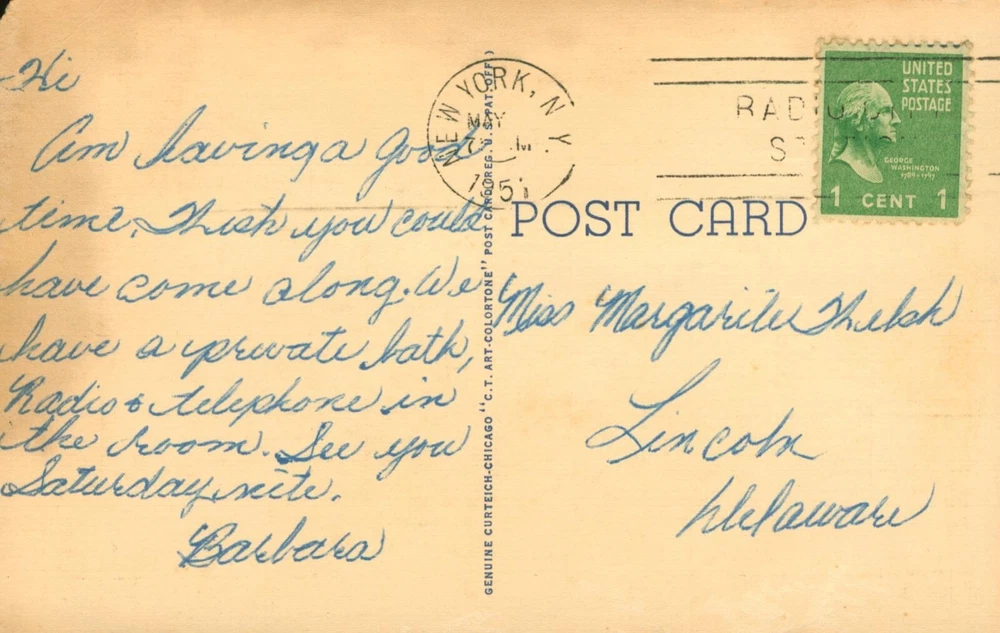 Hi
Am having a good
time. Wish you could
have come along. We
have a private bath,
Radio & telephone in
the room. See you
Saturday nite.
Barbara
GENUINE CURTEICH-CHICAGO "C.T. ART-COLORTONE" POST CARD (REG. U.S. PAT. OFF.)
NEW YORK, N.Y.
MAY
1951
UNITED
STATES
POSTAGE
GEORGE
WASHINGTON
1789-1797
1 CENT 1
POST CARD
Miss Margarite Welsh
Lincoln
Delaware